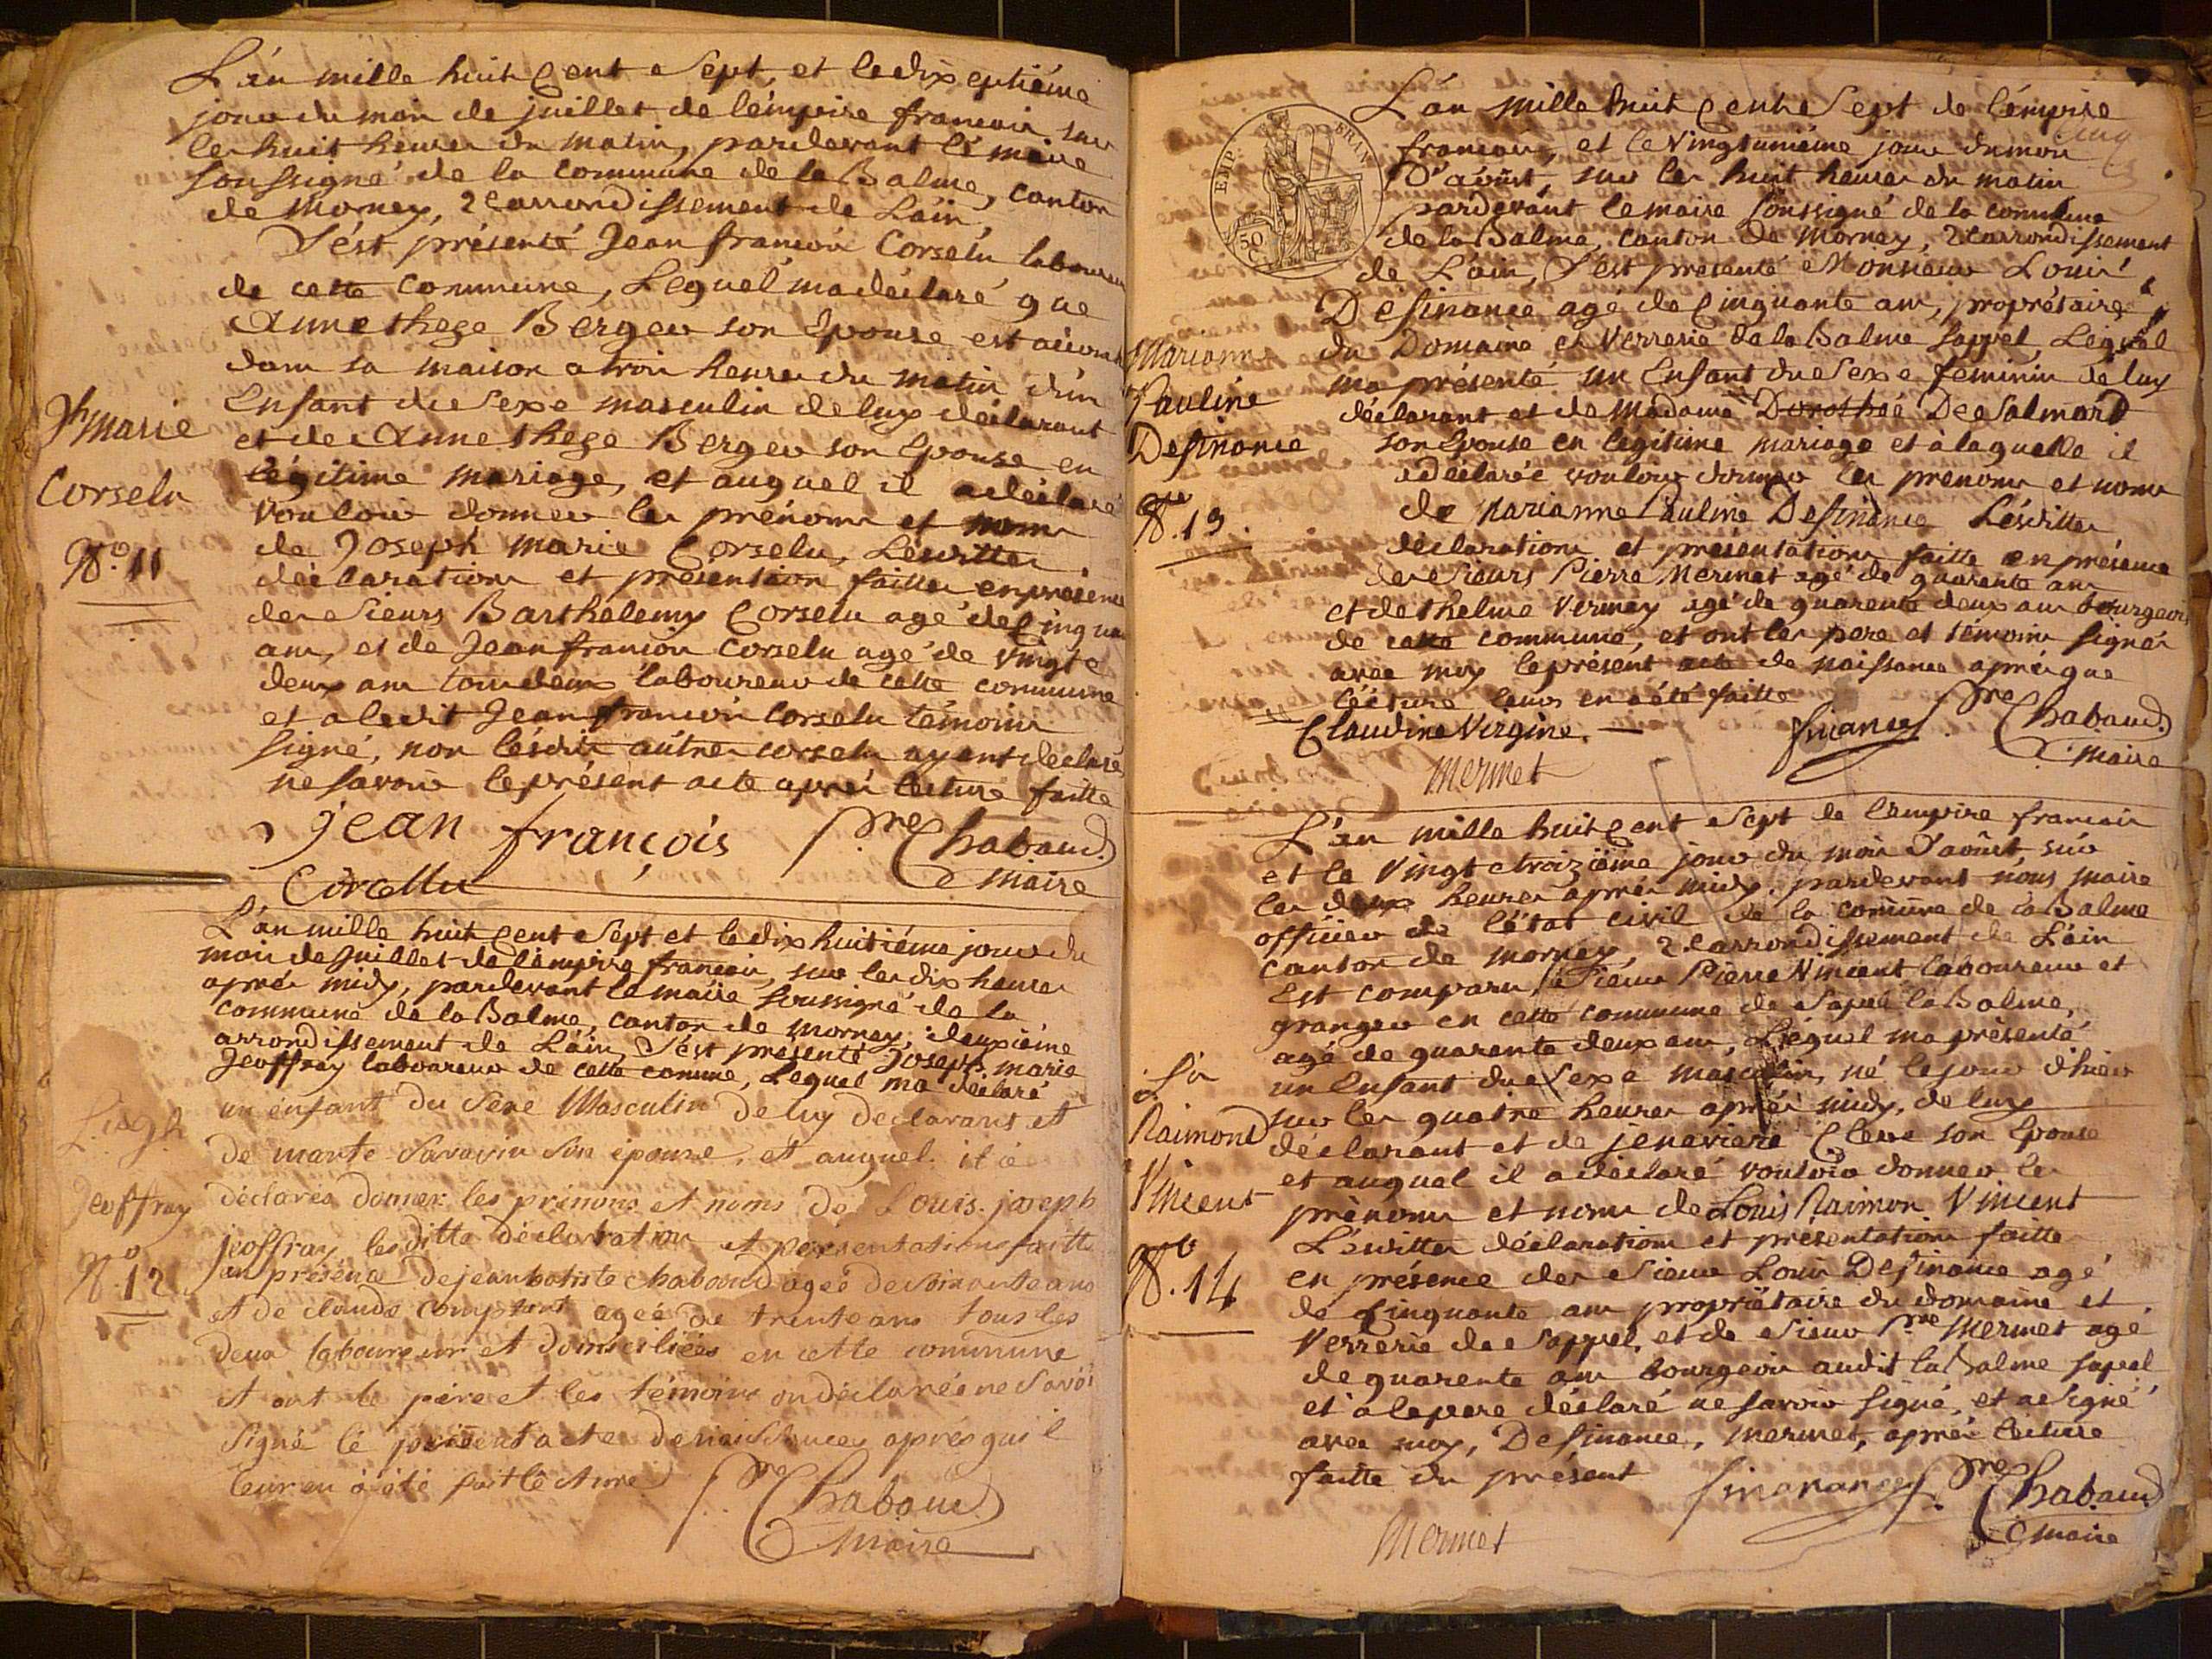 L'an mille huit Cent Sept, et le dix eptiéme
jour du mois de juillet de l'émpire francois sur
les huit heures du matin, pardevant lé maire
soussigné de la Commune de la Balme, canton
de Mornay, 2e arrondissement de L'ain,
S'ést présenté Jean francois Corselu laboureur
de cette Commune, Léquel ma déclaré que
Anne thege Berger son Epouse est
dans sa maison a trois heures du matin d'un
Enfant du Sexe masculin de luy déclarant
et de Anne thege Berger son Epouse en
légitime mariage, et auquel il a déclaré
vouloir donner les prénoms et noms
de Joseph marie Corselu, Lésditter
déclarations et présention faitter en présence
des Sieurs Barthelemy Corselu agé de Cinqua
ans, et de Jean francois Corselu agé de vingt
deux ans tous deux laboureur de cette commune
et a ledit Jean francois Corselu témoins
signé, non lésdits autres corselu ayent déclaré
ne savoir le présent acte aprés lecture faitte
jean françois
Corcellu
Pre Chabaud
maire
Jh marie
Corselu
No. 11
L'an mille huit Cent Sépt et le dix huitiéme jour du
mois de Juillet de l'émpire francois, sur les dix heures
aprés midy, pardevant le maire soussigné de la
Commune de la Balme, canton de Mornay, deuxiéme
arrondissement de L'ain, S'ést présenté Joseph marie
Jeoffray laboureur de cette comune, Lequel ma déclaré
un enfant du Sexe Masculin de luy declarant et
de mante Savarin Son épouse, et auquel il a
déclarés donner les prénoms et noms de Louis joseph
jeoffray lesditte déclaration et présentations faitte
en présence de jean batiste Chaboud agée de soixante ans
et de claude agée de trente ans tous les
deux laboureur et domiciliées en cette commune
et ont le père et les témoins on déclarées ne Savoi
Signé lé présent acte de naissance aprés qu'il
leur en a été fait lécture
Pre Chabaud
maire
Jeoffray
No. 12
cinq
EMP. FRAN
50 C
L'an mille huit Cent Sept de l'émpire
francois, et le Vingt uniéme jour du mois
D'août, sur les huit heures du matin
pardevant le maire soussigné de la commune
de la Balme, canton de Mornay, 2e arrondissement
de L'ain, S'est présenté Monsieur Louis
Definance agé de Cinquante ans, propriétaire
du Domaine et Verrerie de la Balme Sappel Léquel
ma présenté un Enfant du Sexe feminin de luy
déclarant et de Madame Dorothée De Salmard
son Epouse en légitime mariage et à laquelle il
a déclarée vouloir donner les prenoms et noms
de Marianne Pauline Definance Lésditter
déclarations et présentations faitte en présence
des Sieurs Pierre Mermet agé de quarente ans
et de thelme Vermey agé de quarente deux ans bourgeois
de cette commune, et ont les pere et témoins signér
avec moy le présent acte de naissance aprés que
lécture leurs en a été faitte
Claudine Virgine.
finance
Pre Chabaud
maire
Mermet
Marianne
Pauline
Definance
No. 13.
L'an mille huit Cent Sept de l'empire francois
et le Vingt troiziéme jour du mois d'août, sur
les deux heures aprés midy, pardevant nous maire
officier de l'état civil de la comune de la Balme
canton de Mornay, 2e arrondissement de L'ain
Est comparu, Sieur Pierre Vincent laboureur et
granger en cette commune de Sapel la Balme,
agé de quarente deux ans, Léquel ma présenté
un Enfant du Sexe masculin, né le jour d'hier
sur les quatre heures aprés midy, de luy
déclarant et de jenevieve Clerc son Epouse
et auquel il a declaré vouloir donner les
prénoms et noms de Louis Raimon Vincent
Lésditter déclarations et présentations faitte
en présence des Sieur Louis Definance agé
de Cinquante ans propriétaire du domaine et
Verrerie de Sappel, et de Sieur Pre Mermet agé
de quarente ans bourgeois audit la Balme Sapel
et a le pere déclaré ne savoir signé, et a Signé
avec moy, Definance, Mermet, aprés lécture
faitte du présent
Pre Chabaud
maire
Mermet
Raimond
Vincent
No. 14